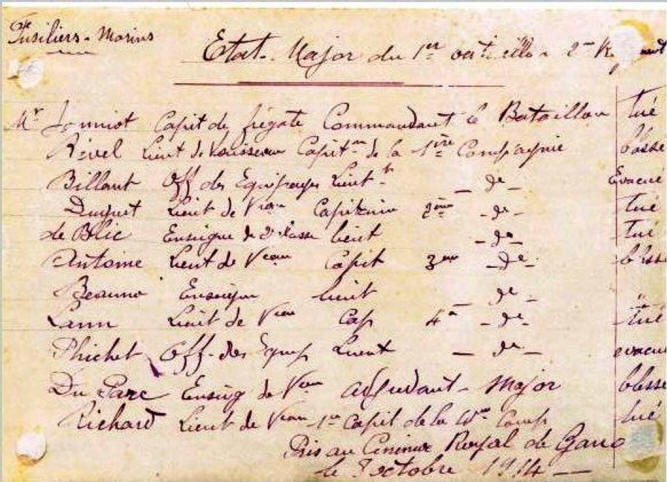 Fusiliers-Marins
Etat-Major du 1er bataillon 2me R
Mr Jonniot Capit de frégate Commandant le Bataillon tué
Révol Lieut de vaisseau Capitne de la 1ère Compagnie blessé
Billant Off des Equipages Lieut - de - Evacué
Duquet Lieut de Veau Capitaine 2ème - de - tué
de Blic Enseigne de 2e classe lieut - de - tué
Antoine Lieut de Veau Capit 3me - de - blessé
Beaune Enseigne lieut - de -
Lann Lieut de Veau Cap 4e - de - tué
Plichet Off-des Equip Lieut - de - evacué
Du Parc Enseig de Veau adjudant-Major blessé
Richard Lieut de Veau - 1re Capit de la Comp tué
Pris au Royal de Gand
le 8 octobre 1914 -